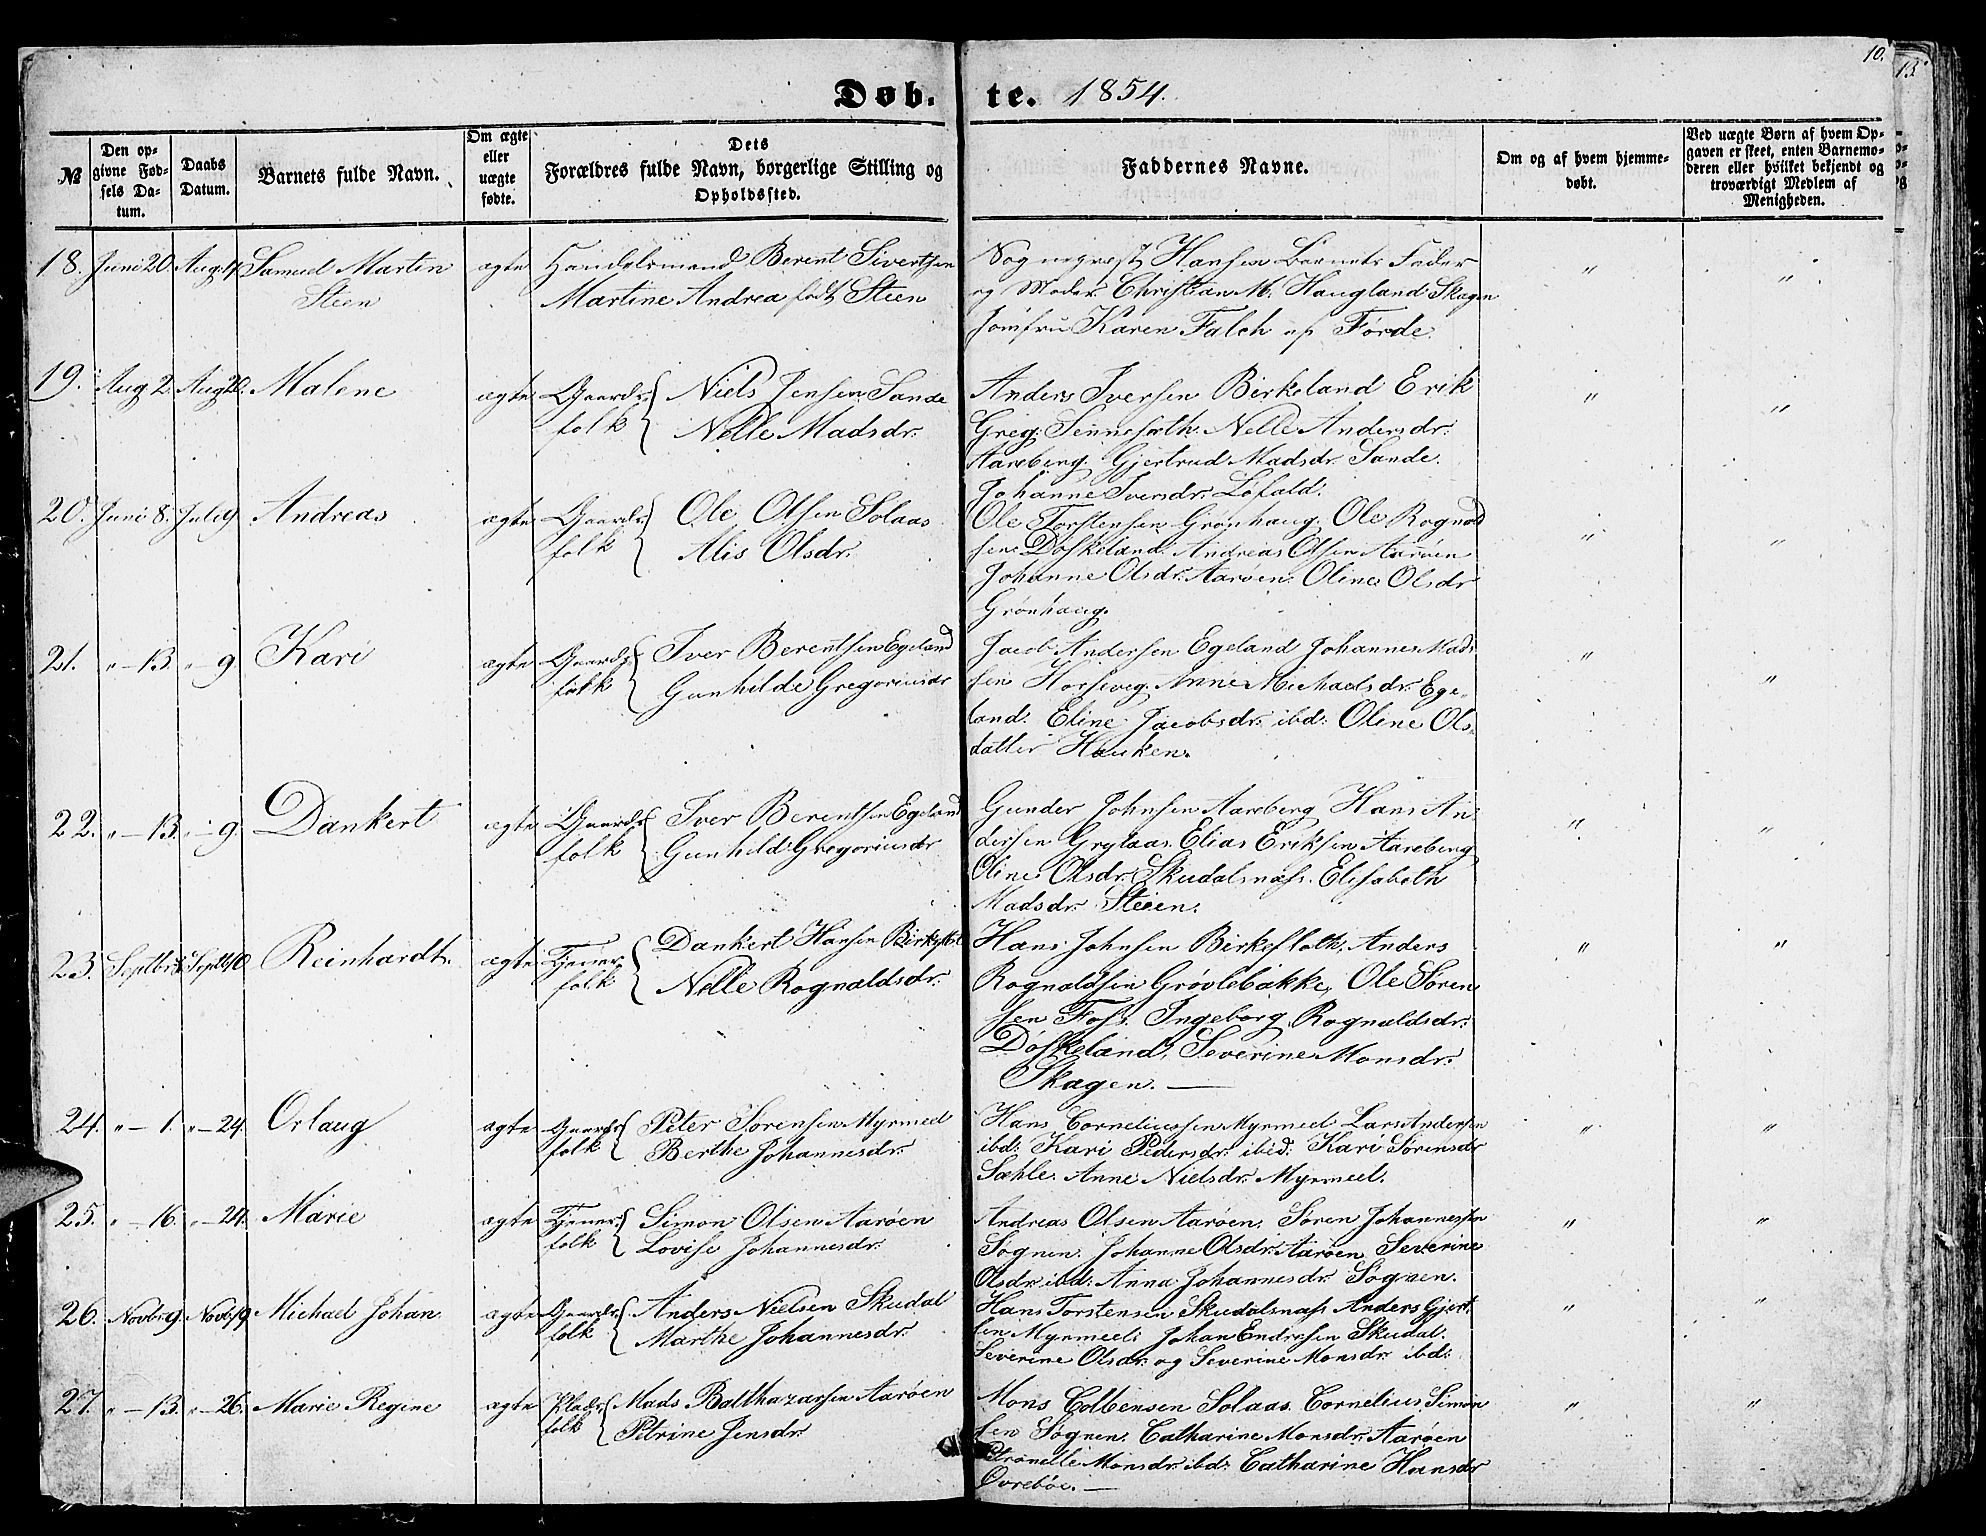 10.
13.
Døb. te. 1854.
№
Den opgivne Fødsels Datum.
Daabs Datum.
Barnets fulde Navn.
Om ægte eller uægte fødte.
Dets Forældres fulde Navn, borgerlige Stilling og Opholdssted.
Faddernes Navne.
Om og af hvem hjemmedøbt.
Ved uægte Børn af hvem Opgaven er skeet, enten Barnemoderen eller hvilket bekjendt og troværdigt Medlem af Menigheden.
18. Juni 20. Samuel Martin ægte Handelsmand Berent Sivertsen Sognepræst Hansen Barnets Fader " "
Steen Martine Andrea født Steen og Moder. Christian M. Haugland Skagen
Jomfru Karen Falch af Førde.
19. Aug 2. Aug 20. Malene ægte Gaards Niels Jensen Sande Anders Iversen Birkeland Erik " "
folk Nelle Madsdr. Greg. Sennesæth. Nelle Andersdr.
Aareberg. Gjertrud Madsdr. Sande.
Johanne Iversdr. Løfald.
20. Juni 8. Juli 9. Andreas ægte Gaards Ole Olsen Solaas Ole Torstensen Grønhaug. Ole Rognald " "
folk Alis Olsdr. sen Døskeland. Andreas Olsen Aarøen
Johanne Olsdr. Aarøen. Oline Olsdr
Grønhaug.
21. " – 13. " – 9. Kari ægte Gaards Iver Berentsen Egeland Jacob Andersen Egeland Johannes Mad " "
folk Gunhilde Gregoriusdr sen Horseveg. Anne Michaelsdr. Ege-
land. Eline Jacobsdr. ibd: Oline Ols-
datter Hauken.
22. " – 13. " – 9. Dankert ægte Gaards Iver Berentsen Egeland Gunder Johnsen Aareberg Hans An " "
folk Gunhild Gregoriusdr dersen Grytaas. Elias Eriksen Aareberg
Oline Olsdr. Skudalsnæss. Elisabeth
Madsdr. Steien.
23. Septbr Septb 10 Reinhardt. ægte Tjener Dankert Hansen Hans Johnsen Birkefloth. Anders " "
folk Nelle Rognaldsdr. Rognaldsen Grøvlebakke, Ole Søren
sen Foss. Ingeborg Rognaldsdr.
Døskeland. Severine Monsdr.
Skagen. —
24. " – 1. " – 24. Orlaug ægte Gaards Peter Sørensen Myrmeel Hans Corneliussen Myrmeel Lars Andersen " "
folk Berthe Johannesdr. ibd: Kari Pedersdr. ibid: Kari Sørensdr
Sæhle. Anne Nielsdr. Myrmeel.
25. " – 16. " – 24. Marie ægte Tjener Simon Olsen Aarøen Andreas Olsen Aarøen. Søren Johannessen " "
folk Lovise Johannesdr. Sognen. Johanne Olsdr. Aarøen Severine
Olsdr. ibd: Anna Johannesdr. Sognen.
26. Novbr 9. Novbr 19. Michael Johan. ægte Gaards Anders Nielsen Skudal Hans Torstensen Skudalsnæss Anders Gjert " "
folk Marthe Johannesdr. sen Myrmeel. Johan Endresen Skudal.
Severine Olsdr. og Severine Monsdr. ibd:
27. " – 13. " – 26. Marie Regine ægte Plads Mads Balthazarsen Aarøen Mons Colbensen Solaas. Cornelius Simon " "
folk Petrine Jensdr. sen Sognen. Catharine Monsdr. Aarøen
Petronelle Monsdr. ibd: Catharine Hansdr
Øvrebøe. —